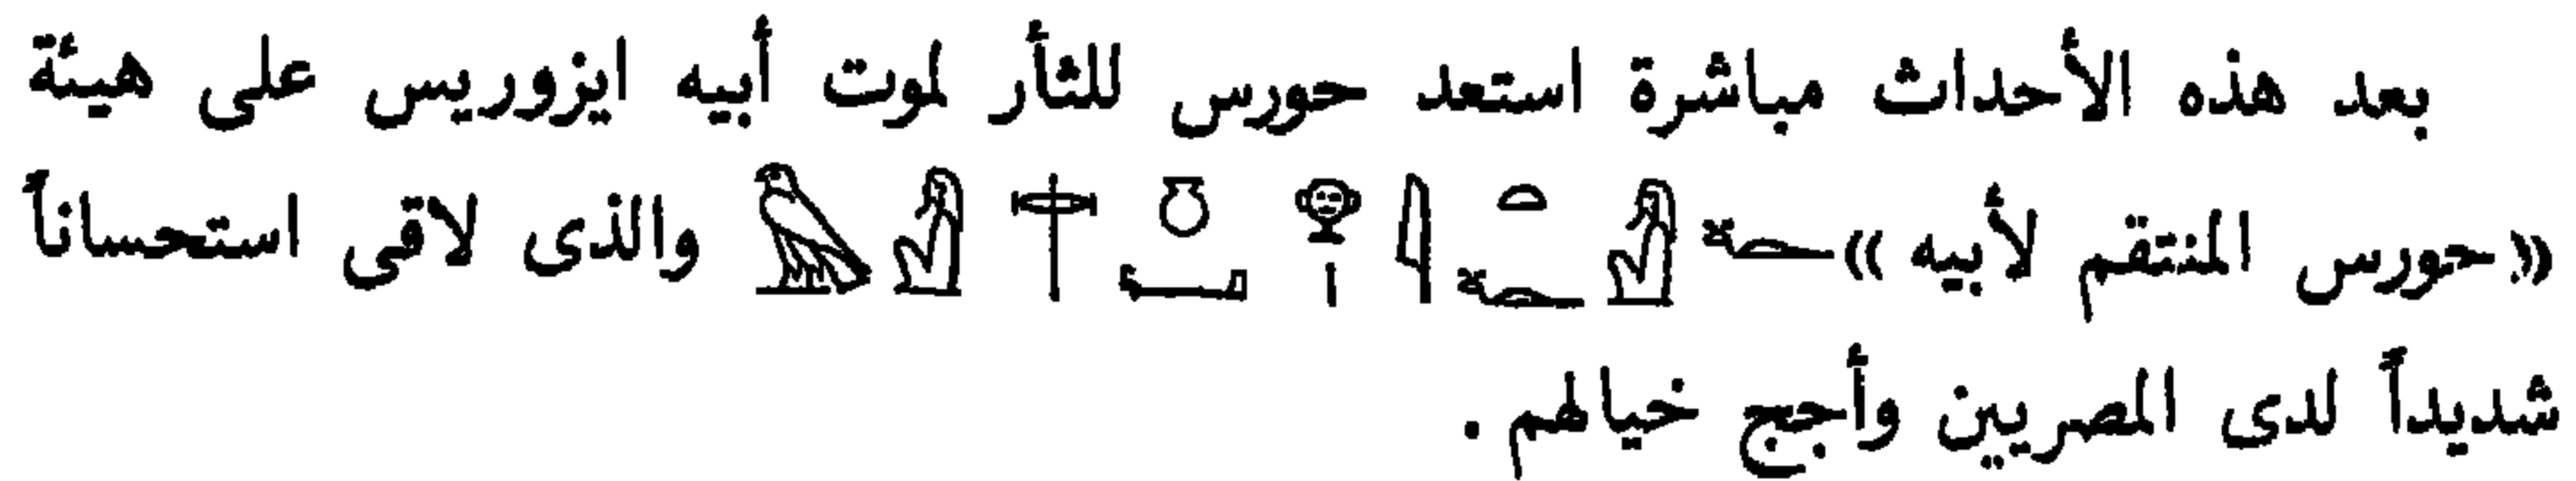 بعد هذه الأحداث مباشرة استعد حورس للثأر لموت أبيه ايزوريس على هيئة
«حورس المنتقم لأبيه» 𓅃𓀭𓐩𓏌𓁷𓏤𓇋𓏏𓆑𓀭𓆑 والذى لاقى استحساناً
شديداً لدى المصريين وأجج خيالهم .